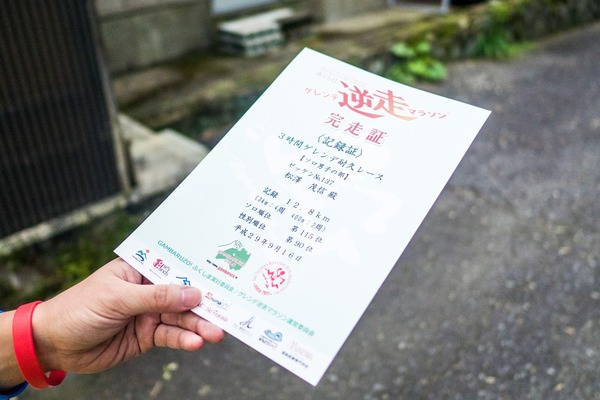 ゲレンデ逆走マラソン
完走証
(記録証)
3時間ゲレンデ耐久レース
【ソロ男子の部】
ゼッケン№137
松澤 茂信 殿
記録 12.8km
(2km:4周 400m:2周)
ソロ順位 第115位
性別順位 第90位
平成29年9月16日
GAMBARUZO! ふくしま実行委員会/ゲレンデ逆走マラソン運営委員会